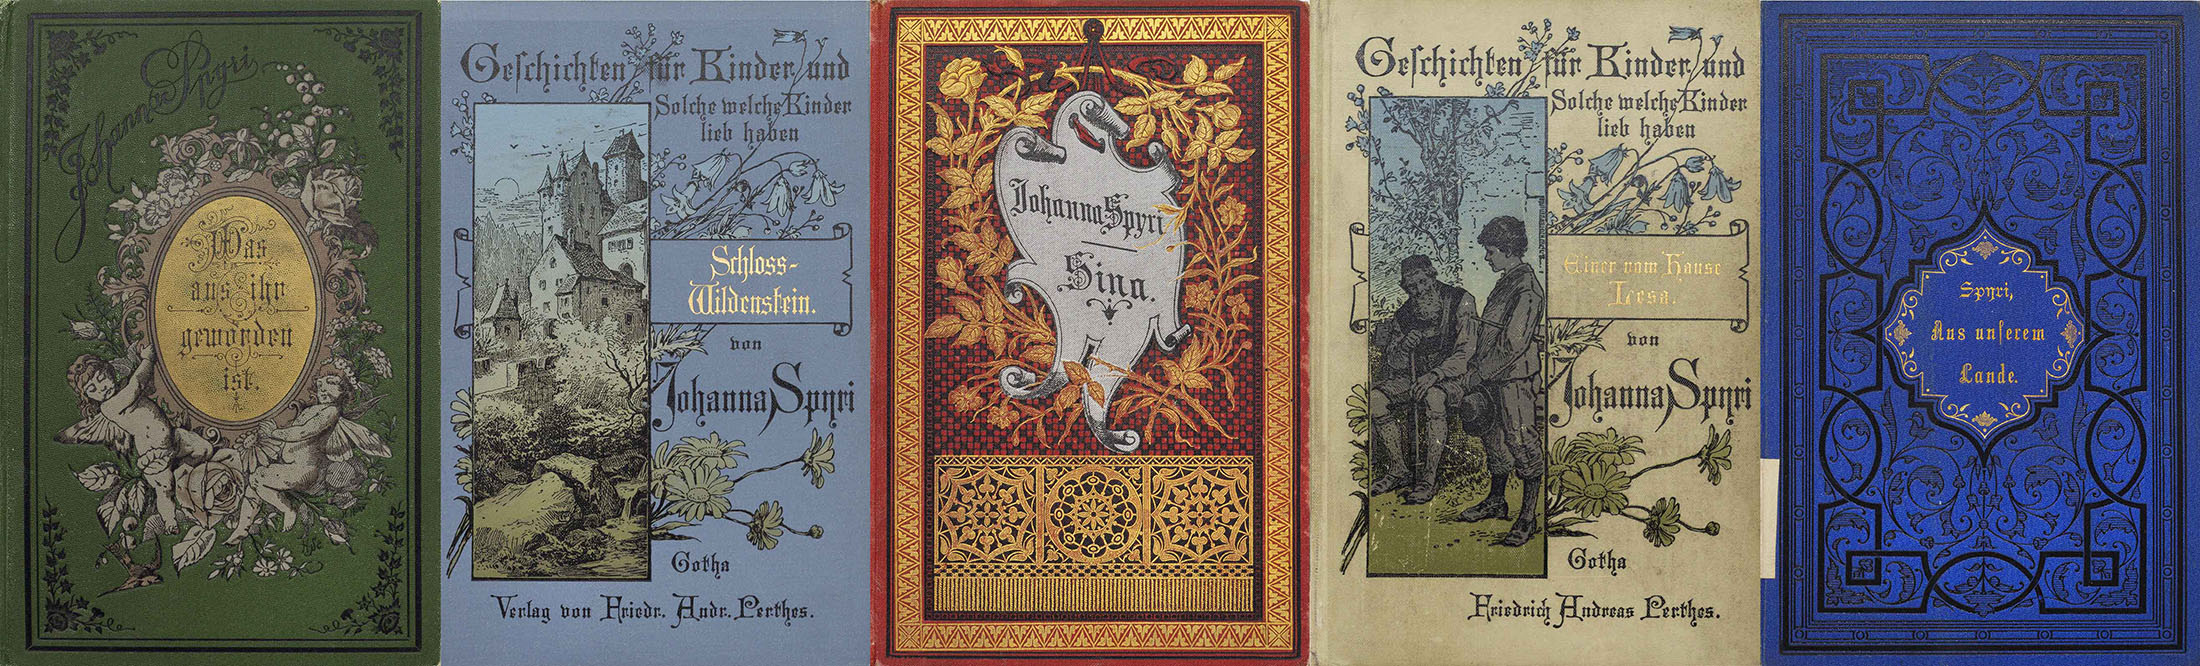 Johanna Spyri
Was
aus ihr
geworden
ist.
Geschichten für Kinder und
Solche welche Kinder
lieb haben
Schloss-
Wildenstein.
von
Johanna Spyri
Gotha
Verlag von Friedr. Andr. Perthes.
Johanna Spyri
Sina.
Geschichten für Kinder und
Solche welche Kinder
lieb haben
Einer vom Hause
Lesa.
von
Johanna Spyri
Gotha
Friedrich Andreas Perthes.
Spyri,
Aus unserem
Lande.